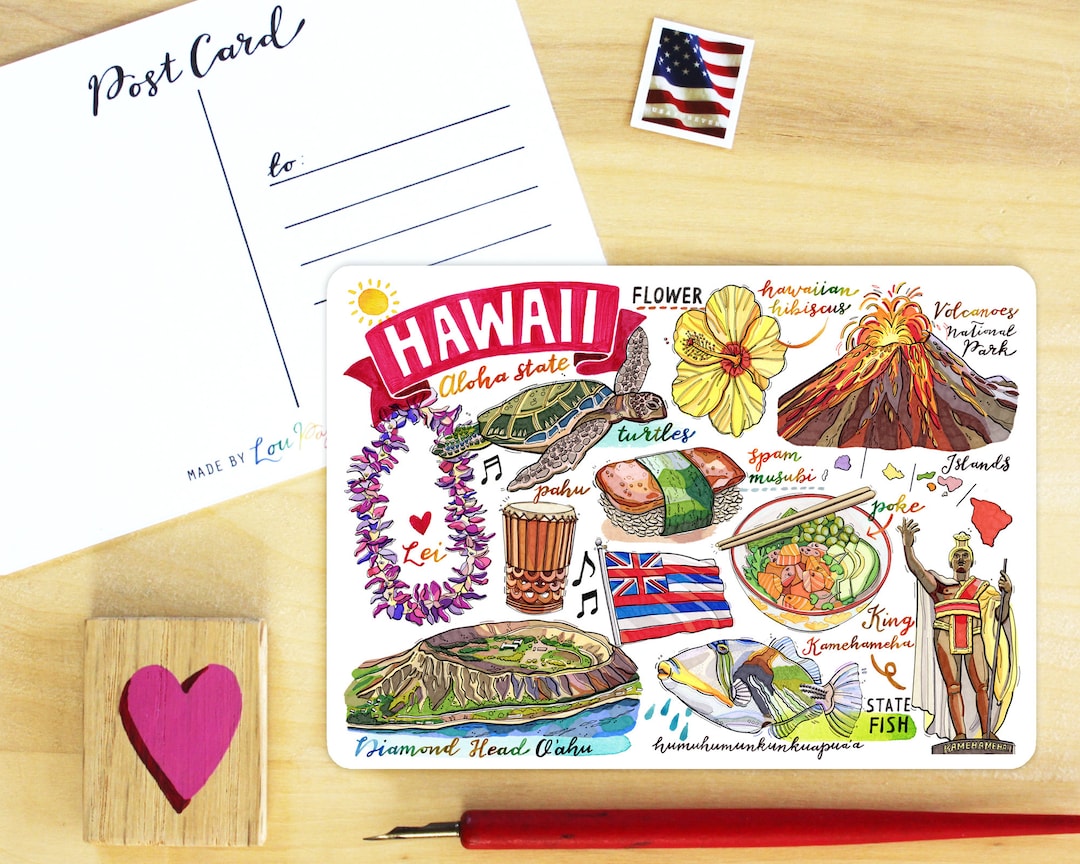 Post Card
to:
MADE BY Lou Pa
USA FOREVER
HAWAII
Aloha state
FLOWER
hawaiian
hibiscus
Volcanoes
National
Park
turtles
spam
musubi
Islands
pahu
poke
Lei
King
Kamehameha
STATE
FISH
Diamond Head O'ahu
humuhumunkunkuapua'a
KAMEHAMEHA